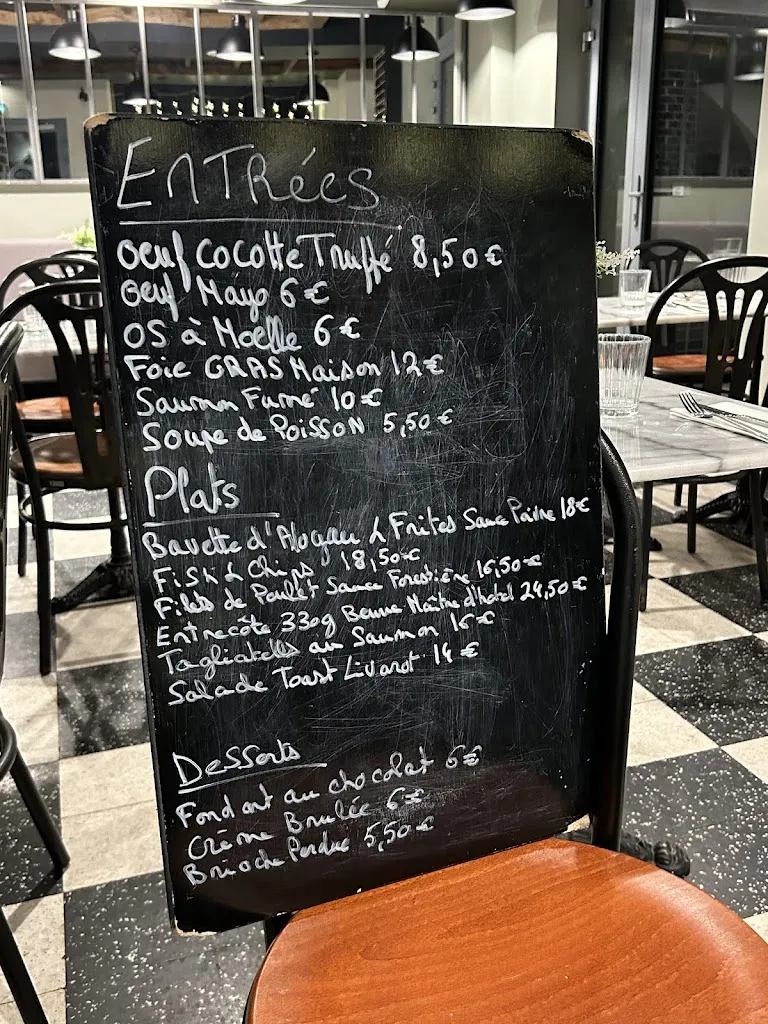 ENTRÉES
Oeuf Cocotte Truffé 8,50€
Oeuf Mayo 6€
OS à Moelle 6€
Foie GRAS Maison 12€
Saumon Fumé 10€
Soupe de POISSON 5,50€
Plats
Bavette d'Aloyau & Frites Sauce Poivre 18€
FiSh & Chips 18,50€
Filets de Poulet Sauce Forestière 16,50€
Entrecôte 330g Beurre Maître d'hotel 24,50€
Tagliatelles au Saumon 16€
Salade Toast Livarot 14€
Desserts
Fondant au chocolat 6€
Crème Brulée 6€
Brioche Perdue 5,50€